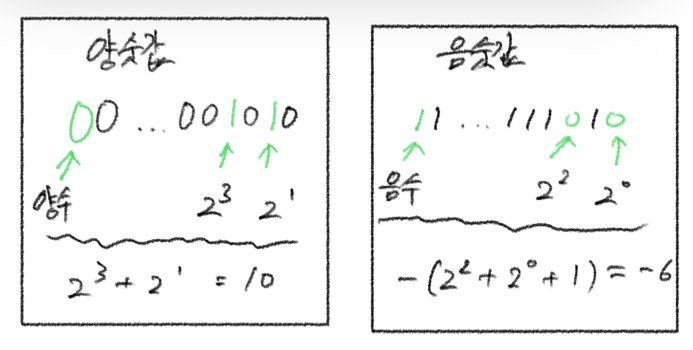 양숫값
00 ... 001010
양수 2³ 2¹
2³ + 2¹ = 10
음숫값
11 ... 111010
음수 2² 2⁰
-(2² + 2⁰ + 1) = -6